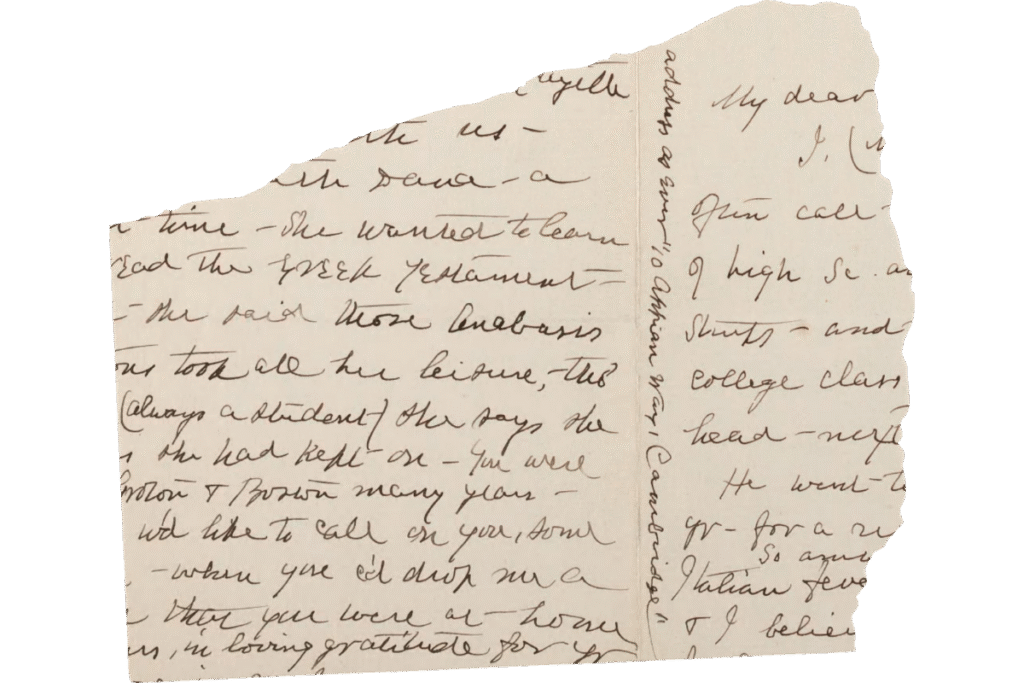 us –
Dana – a
time – She wanted to learn
read the Greek Testament –
– she said those Anabasis
took all her leisure, – tho'
(always a student) she says she
she had kept on – You were
Groton & Boston many years –
w'd like to call on you, some
– when you c'd drop me a
that you were at – home
in loving gratitude for yr
address as ever "10 Appian Way, Cambridge"
My dear
I. (
often call –
of high Sc. an
– and
college class
head – next
He went t
yr – for a
So
Italian feve
& I believ